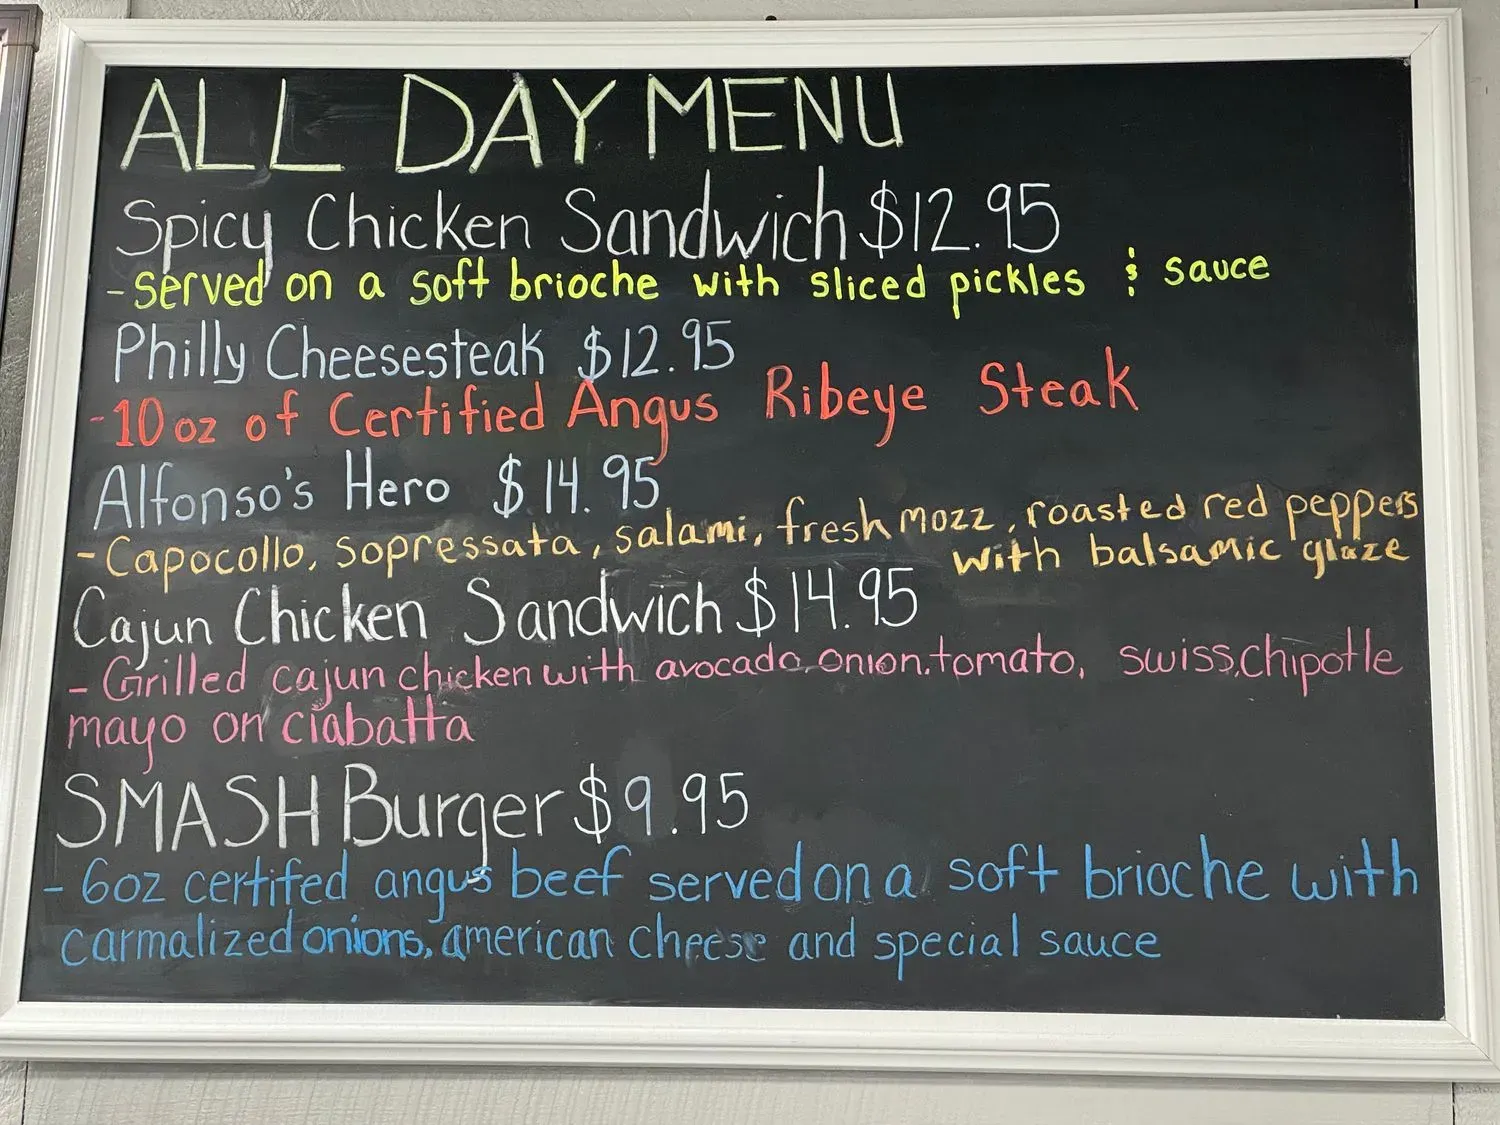 ALL DAY MENU
Spicy Chicken Sandwich $12.95
-served on a soft brioche with sliced pickles & sauce
Philly Cheesesteak $12.95
-10 oz of Certified Angus Ribeye Steak
Alfonso's Hero $14.95
-Capocollo, sopressata, salami, fresh mozz, roasted red peppers
with balsamic glaze
Cajun Chicken Sandwich $14.95
- Grilled cajun chicken with avocado, onion, tomato, swiss, chipotle
mayo on ciabatta
SMASH Burger $9.95
- 6oz certifed angus beef served on a soft brioche with
carmalized onions, american cheese and special sauce